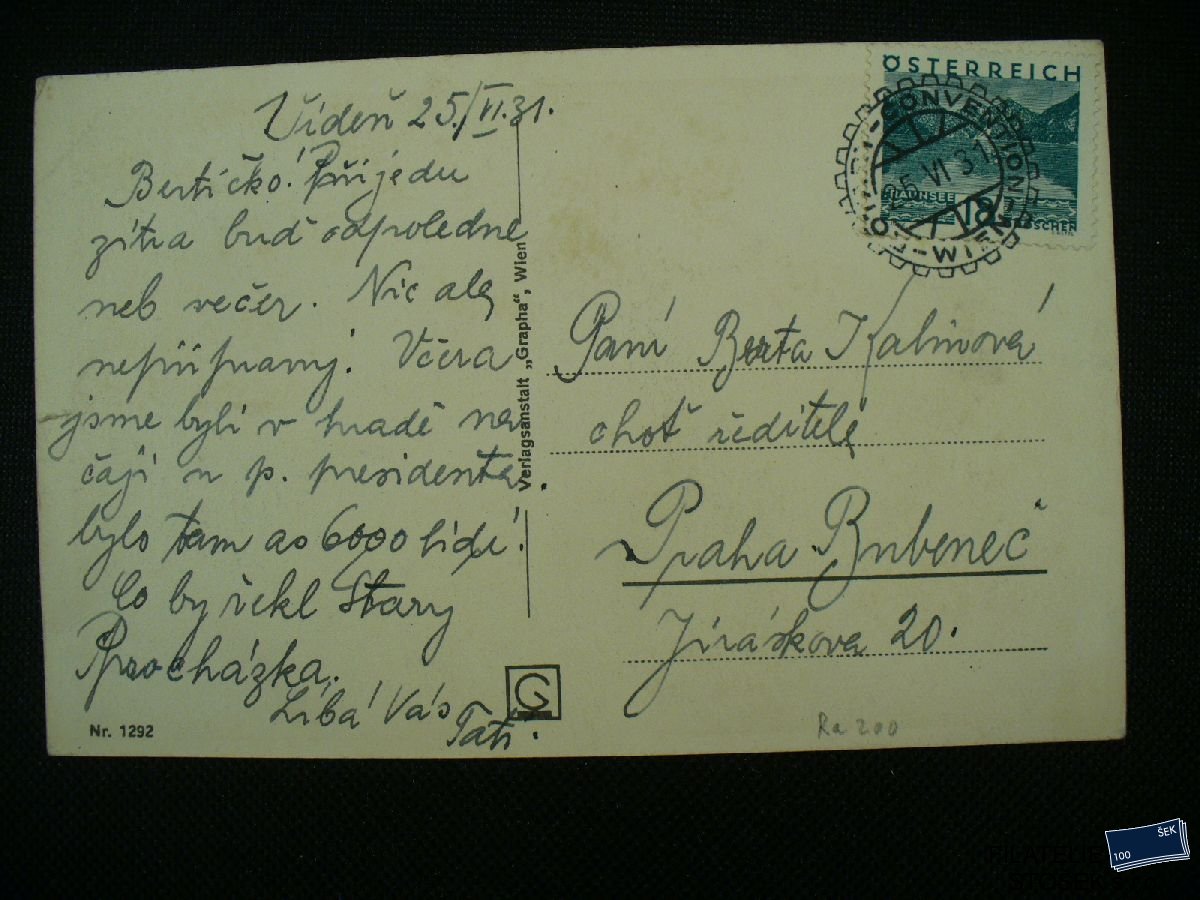 Vídeň 25./VI.31.
Bertíčko! Přijedu
zítra buď odpoledne
neb večer. Nic ale
nepřipravuj! Včera
jsme byli v hradě na
čaji u p. presidenta
bylo tam as 6000 lidí!
Co by řekl Starý
Procházka.
Líbá Vás
Táti.
Nr. 1292
Verlagsanstalt „Grapha“, Wien
G
ÖSTERREICH
CONVENTION
WIEN
VI 31
Paní Berta Kalinová
choť ředitele
Praha Bubeneč
Jiráskova 20.
Ra 200
100 ŠEK